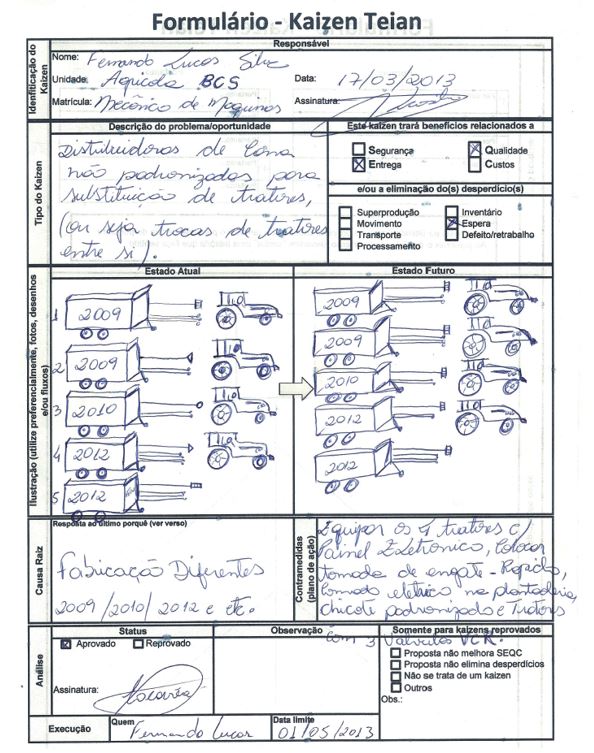 Formulário - Kaizen Teian
Identificação do Kaizen
Responsável
Nome: Fernando Lucas Silva
Unidade: Agricola BCS Data: 17/03/2013
Matrícula: Mecânico de Maquinas Assinatura:
Tipo do Kaizen
Descrição do problema/oportunidade
Distribuidoras de Cana
não padronizadas para
substituição de tratores,
(ou seja trocas de tratores
entre si).
Este kaizen trará benefícios relacionados a
Segurança Qualidade
Entrega Custos
e/ou a eliminação do(s) desperdício(s)
Superprodução Inventário
Movimento Espera
Transporte Defeito/retrabalho
Processamento
Ilustração (utilize preferencialmente, fotos, desenhos e/ou fluxos)
Estado Atual
1 2009
2 2009
3 2010
4 2012
5 2012
Estado Futuro
2009
2009
2010
2012
2012
Causa Raiz
Resposta ao último porquê (ver verso)
Fabricação Diferentes
2009/2010/2012 e etc.
Contramedidas (plano de ação)
Equipar os 4 tratores c/
Painel Eletronico, Colocar
tomada de engate-Rapido,
Comado eletrico na plantadeira,
chicote padronizado e Tratores
com 3 Valvulas VCR.
Análise
Status
Aprovado Reprovado
Assinatura:
Observação
Somente para kaizens reprovados
Proposta não melhora SEQC
Proposta não elimina desperdícios
Não se trata de um kaizen
Outros
Obs.:
Execução
Quem Fernando Lucas
Data limite 01/05/2013